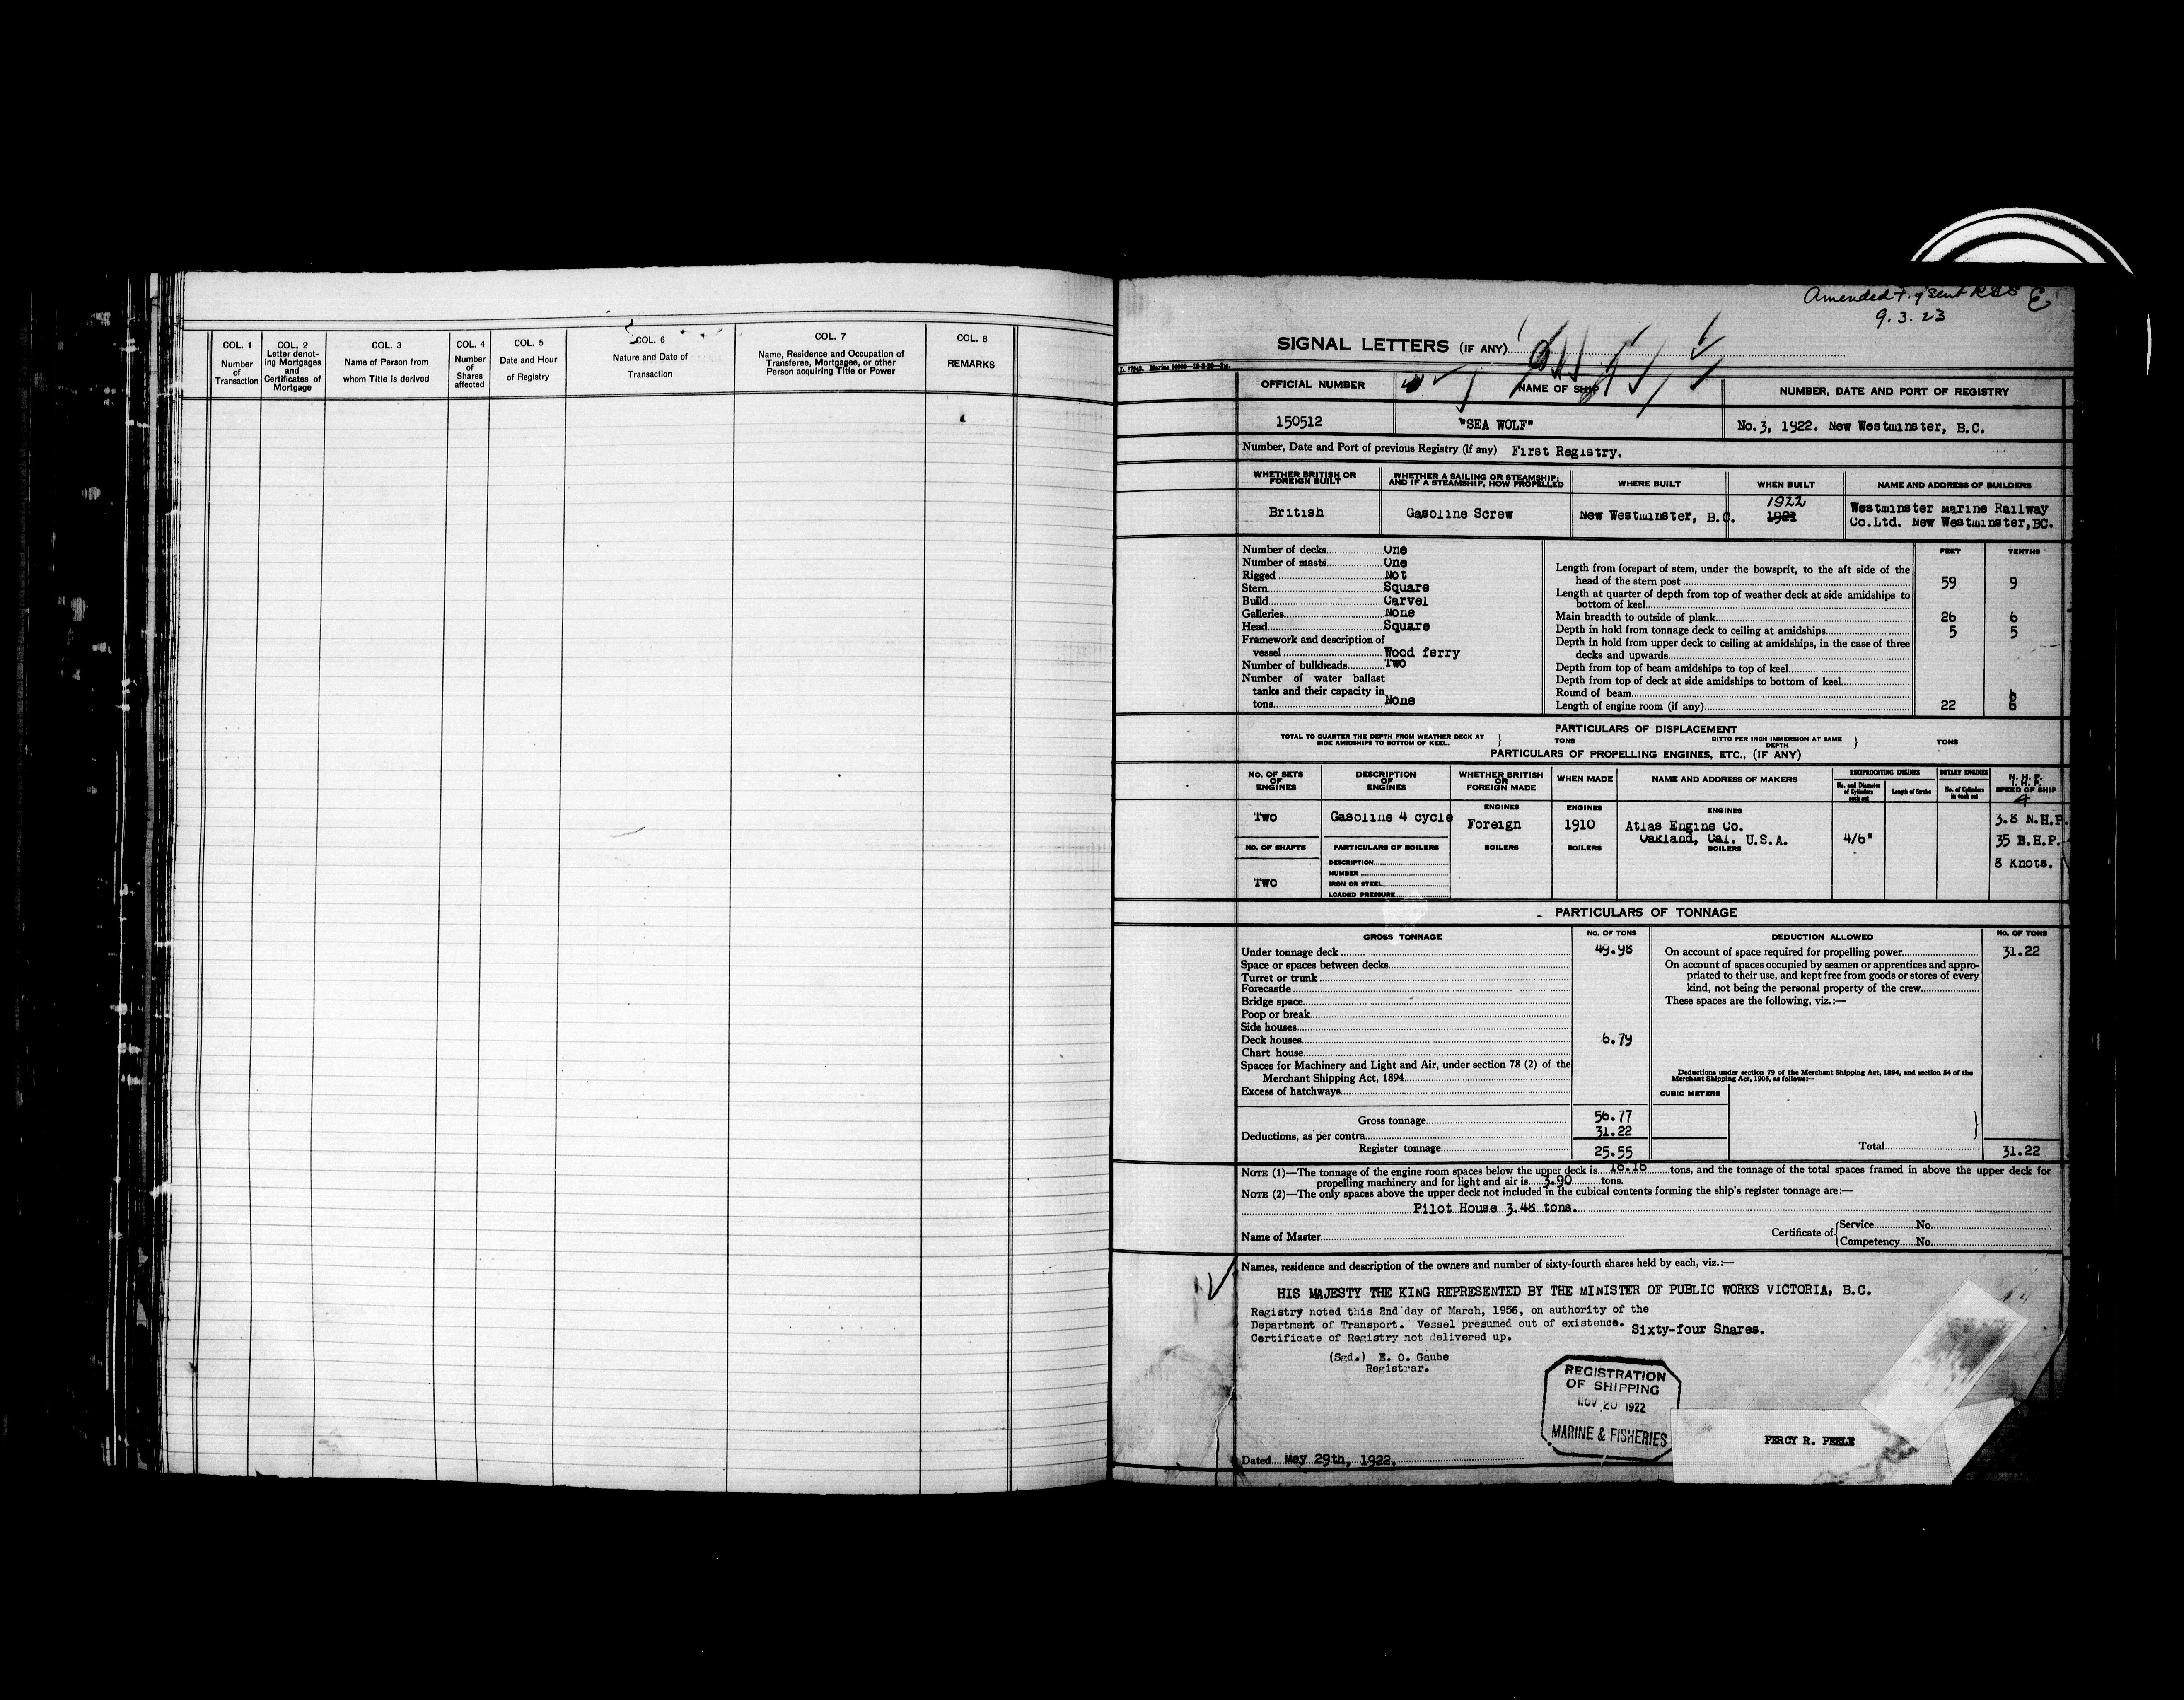 COL. 1
Number
of
Transaction
COL. 2
Letter denot-
ing Mortgages
and
Certificates of
Mortgage
COL. 3
Name of Person from
whom Title is derived
COL. 4
Number
of
Shares
affected
COL. 5
Date and Hour
of Registry
COL. 6
Nature and Date of
Transaction
COL. 7
Name, Residence and Occupation of
Transferee, Mortgagee, or other
Person acquiring Title or Power
COL. 8
REMARKS
Amended
9. 3. 23
SIGNAL LETTERS (IF ANY)
OFFICIAL NUMBER
NAME OF SHIP
NUMBER, DATE AND PORT OF REGISTRY
150512
"SEA WOLF"
No.3, 1922. New Westminster, B.C.
Number, Date and Port of previous Registry (if any) First Registry.
WHETHER BRITISH OR
FOREIGN BUILT
WHETHER A SAILING OR STEAMSHIP;
AND IF A STEAMSHIP, HOW PROPELLED
WHERE BUILT
WHEN BUILT
NAME AND ADDRESS OF BUILDERS
British
Gasoline Screw
New Westminster, B.C.
1922
1921
Westminster Marine Railway
Co.Ltd. New Westminster,BC.
Number of decks One
Number of masts One
Rigged Not
Stern Square
Build Carvel
Galleries None
Head Square
Framework and description of
vessel Wood ferry
Number of bulkheads Two
Number of water ballast
tanks and their capacity in
tons None
FEET TENTHS
Length from forepart of stem, under the bowsprit, to the aft side of the
head of the stern post 59 9
Length at quarter of depth from top of weather deck at side amidships to
bottom of keel
Main breadth to outside of plank 26 6
Depth in hold from tonnage deck to ceiling at amidships 5 5
Depth in hold from upper deck to ceiling at amidships, in the case of three
decks and upwards
Depth from top of beam amidships to top of keel
Depth from top of deck at side amidships to bottom of keel
Round of beam 6
Length of engine room (if any) 22 6
PARTICULARS OF DISPLACEMENT
TOTAL TO QUARTER THE DEPTH FROM WEATHER DECK AT
SIDE AMIDSHIPS TO BOTTOM OF KEEL. } TONS
DITTO PER INCH IMMERSION AT SAME
DEPTH } TONS
PARTICULARS OF PROPELLING ENGINES, ETC., (IF ANY)
No. OF SETS
OF
ENGINES
DESCRIPTION
OF
ENGINES
WHETHER BRITISH
OR
FOREIGN MADE
WHEN MADE
NAME AND ADDRESS OF MAKERS
RECIPROCATING ENGINES
No. and Diameter
of Cylinders
each set
Length of Stroke
ROTARY ENGINES
No. of Cylinders
in each set
N. H. P.
I. H. P.
SPEED OF SHIP
Two
Gasoline 4 cycle
ENGINES
Foreign
ENGINES
1910
ENGINES
Atlas Engine Co.
Oakland, Cal. U.S.A.
4/6"
3.8 N.H.P.
35 B.H.P.
8 Knots.
No. OF SHAFTS
Two
PARTICULARS OF BOILERS
DESCRIPTION
NUMBER
IRON OR STEEL
LOADED PRESSURE
BOILERS
BOILERS
BOILERS
PARTICULARS OF TONNAGE
GROSS TONNAGE
No. OF TONS
DEDUCTION ALLOWED
No. OF TONS
Under tonnage deck 49.98
Space or spaces between decks
Turret or trunk
Forecastle
Bridge space
Poop or break
Side houses
Deck houses 6.79
Chart house
Spaces for Machinery and Light and Air, under section 78 (2) of the
Merchant Shipping Act, 1894
Excess of hatchways
Gross tonnage 56.77
Deductions, as per contra 31.22
Register tonnage 25.55
On account of space required for propelling power 31.22
On account of spaces occupied by seamen or apprentices and appro-
priated to their use, and kept free from goods or stores of every
kind, not being the personal property of the crew
These spaces are the following, viz.:—
Deductions under section 79 of the Merchant Shipping Act, 1894, and section 54 of the
Merchant Shipping Act, 1906, as follows:—
CUBIC METERS
Total 31.22
NOTE (1)—The tonnage of the engine room spaces below the upper deck is 16.16 tons, and the tonnage of the total spaces framed in above the upper deck for
propelling machinery and for light and air is 3.90 tons.
NOTE (2)—The only spaces above the upper deck not included in the cubical contents forming the ship's register tonnage are:—
Pilot House 3.48 tons.
Name of Master
Certificate of { Service No.
Competency No.
Names, residence and description of the owners and number of sixty-fourth shares held by each, viz.:—
HIS MAJESTY THE KING REPRESENTED BY THE MINISTER OF PUBLIC WORKS VICTORIA, B.C.
Registry noted this 2nd day of March, 1956, on authority of the
Department of Transport. Vessel presumed out of existence.
Certificate of Registry not delivered up.
Sixty-four Shares.
(Sgd.) E. O. Gaube
Registrar.
REGISTRATION
OF SHIPPING
NOV 20 1922
MARINE & FISHERIES
PERCY R. PEELE
Dated May 29th, 1922.